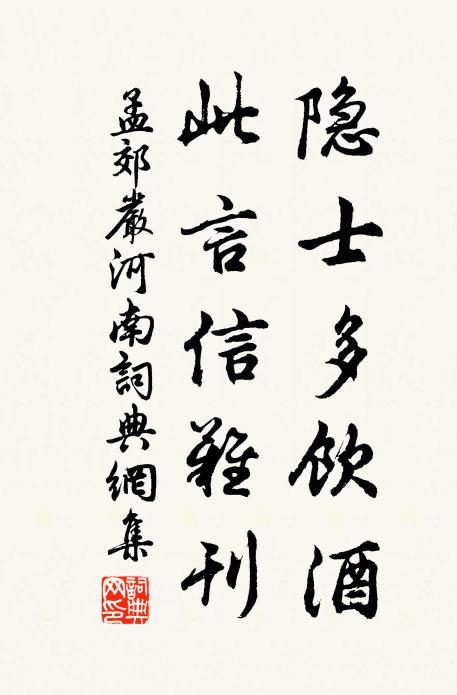 隐士多饮酒
此言信難刊
孟郊嚴河南詞典網集
詞典網印